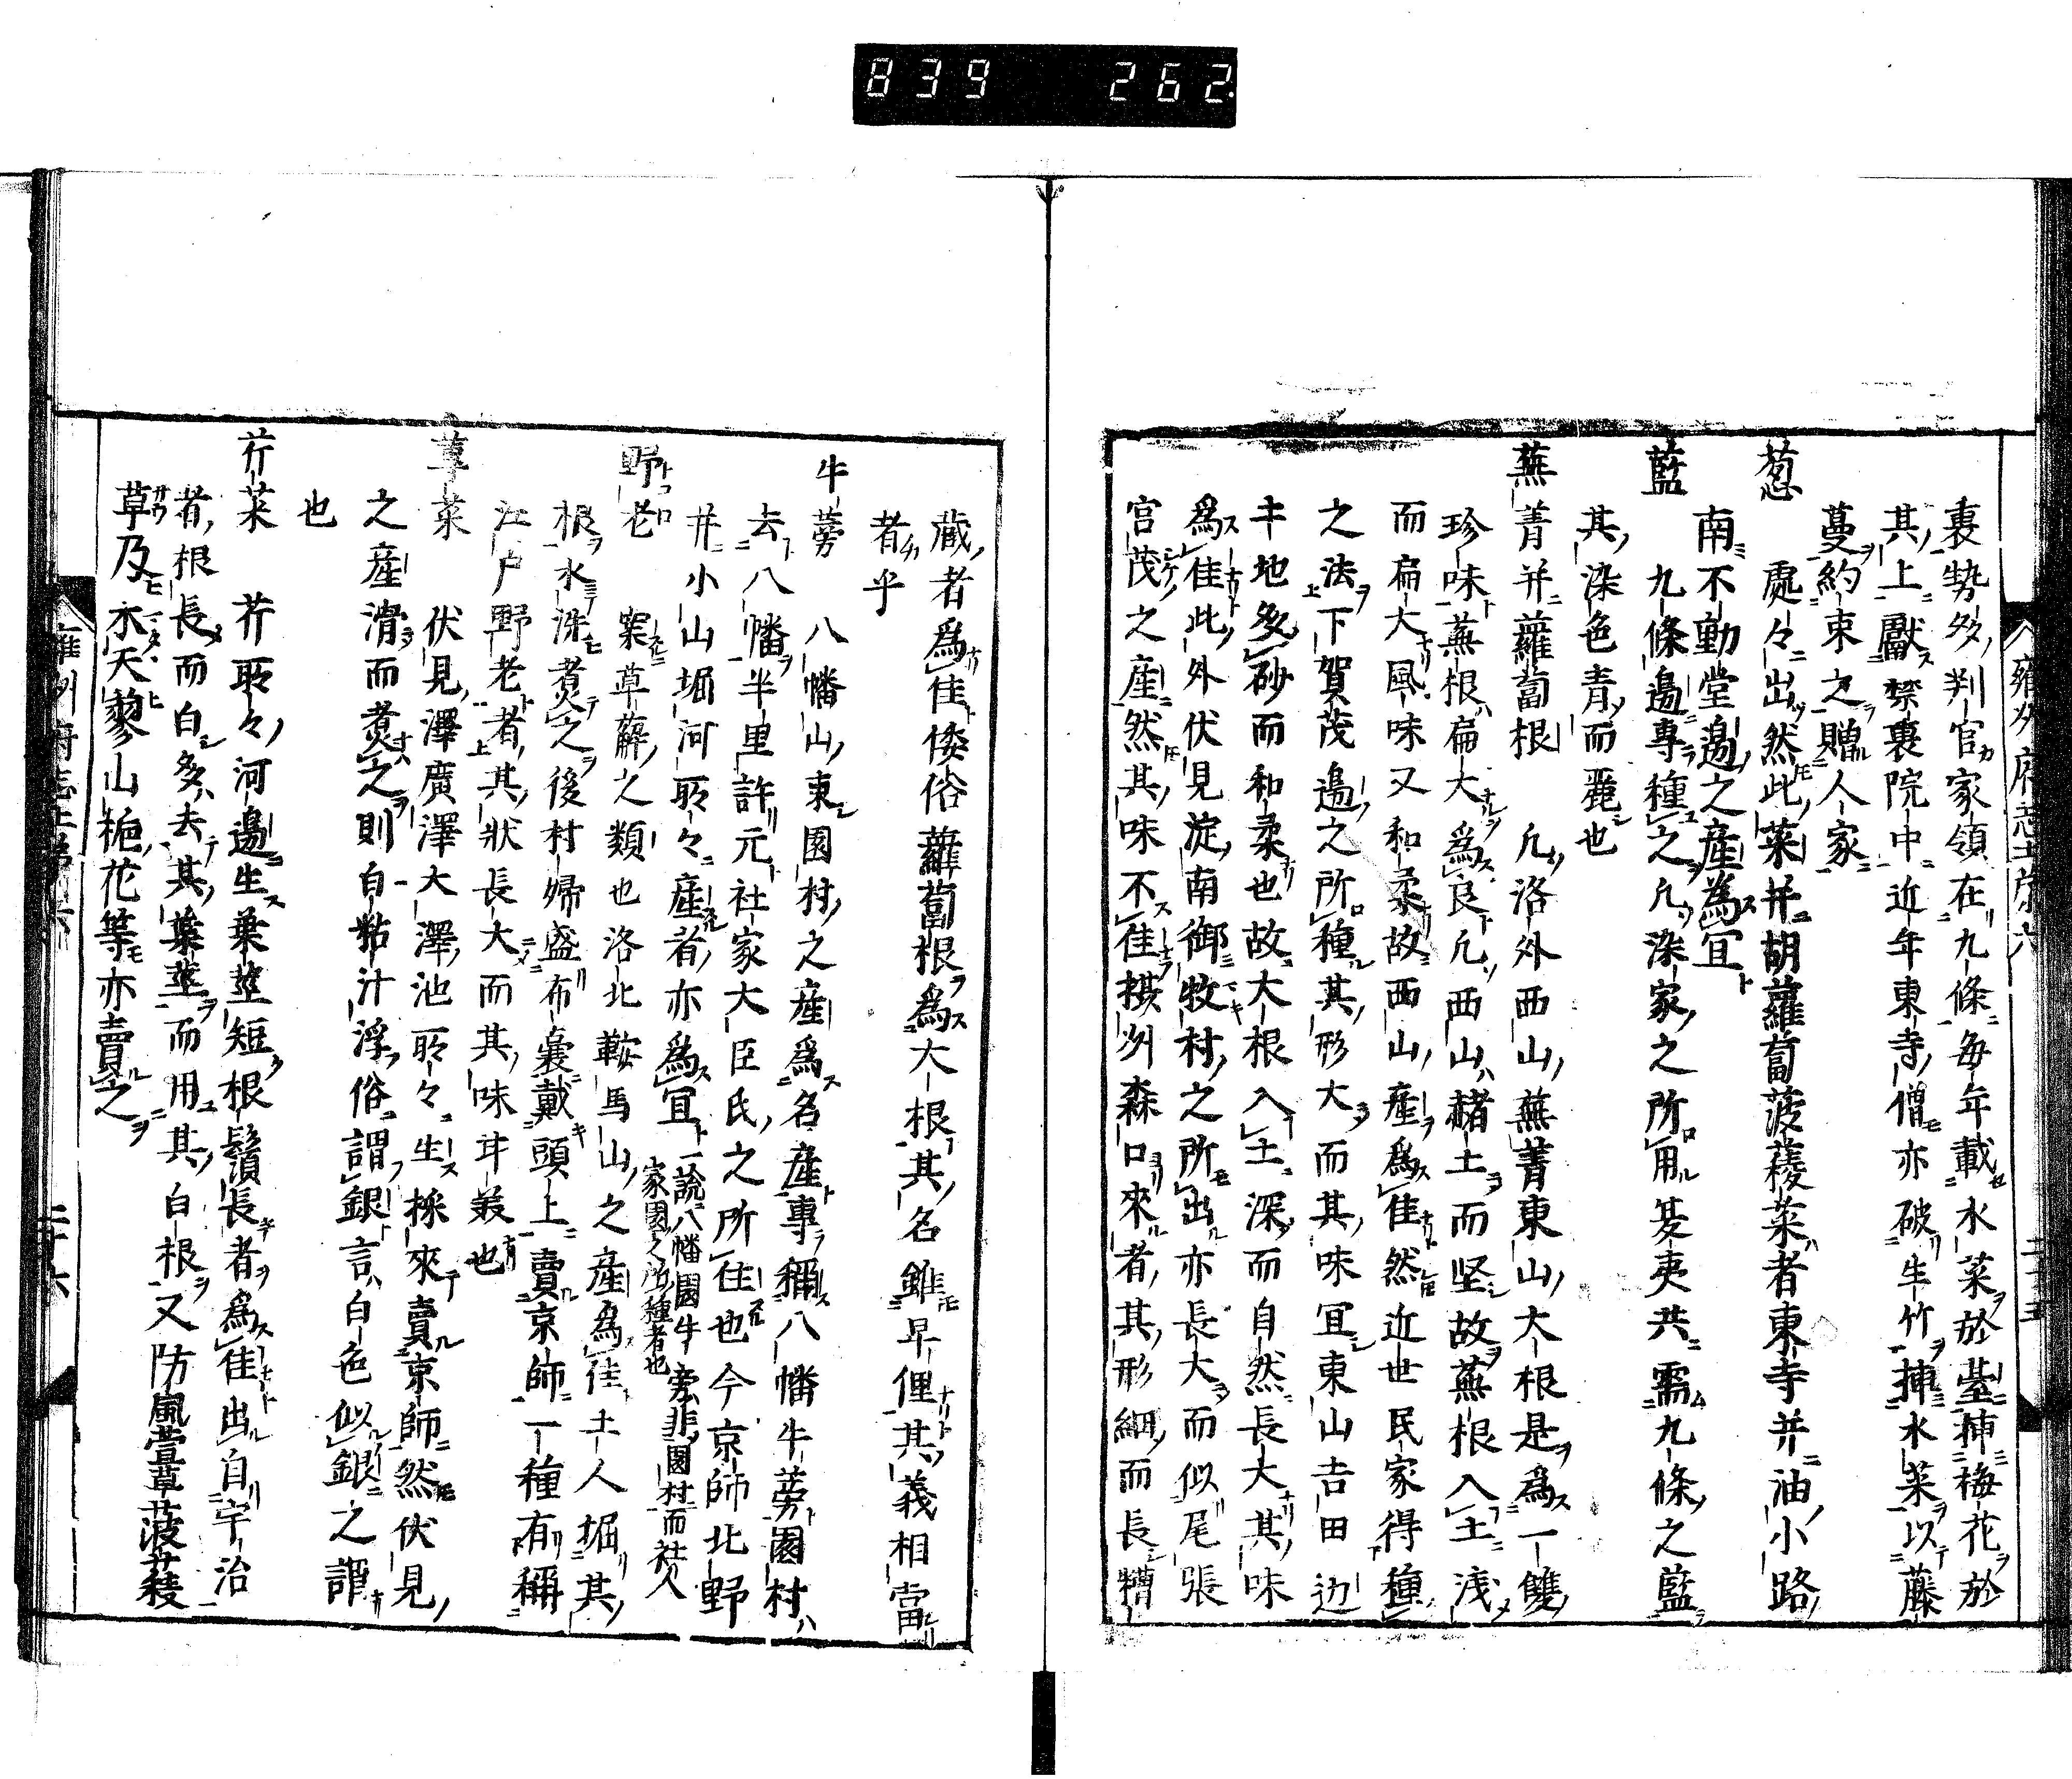 839 262
雍州府志土產六
二十五
裏勢多判官家領在九條每年載水菜於臺揷梅花於
其上獻禁裏院中近年東寺僧亦破生竹揷水菜以藤
蔓約束之贈人家
葱 處々出然此菜并胡蘿蔔菠薐菜者東寺并油小路
南不動堂邊之產為宜
藍 九條邊專種之凢染家之所用芟夷共需九條之藍
其染色青而麗也
蕪菁并蘿蔔根 凢洛外西山蕪菁東山大根是爲一雙
珍味蕪根扁大爲良凢西山赭土而坚故蕪根入土淺
而扁大風味又和柔故西山產爲佳然近世民家得種
之法下賀茂邊之所種其形大而其味宜東山吉田边
丰地多砂而和柔也故大根入土深而自然長大其味
爲佳此外伏見淀南御牧村之所出亦長大而似尾張
宮茂之產然其味不佳摂州森口來者其形細而長糟
藏者爲佳倭俗蘿蔔根爲大根其名雖早俚其義相當
者乎
牛蒡 八幡山東園村之產爲名產專稱八幡牛蒡園村
去八幡半里許元社家大臣氏之所住也今京師北野
并小山堀河所々產者亦爲宜一說八幡園牛蒡非園村而社人
家園之所種者也
野老 䕃草薢之類也洛北鞍馬山之產爲佳土人堀其
根水洗煑之後村婦盛布囊戴頭上賣京師一種有稱
江户野老者其狀長大而其味丼羙也
蓴菜 伏見澤廣澤大澤池所々生採來賣京師然伏見
之產滑而煑之則自粘汁浮俗謂銀言白色似銀之謂
也
芥菜 芥所々河邊生葉莖短根鬚長者爲佳出自宇治
者根長而白多去其葉莖而用其白根又防風萱草菠薐
草及木天蓼山梔花等亦賣之
雍州府志土產六
二十六